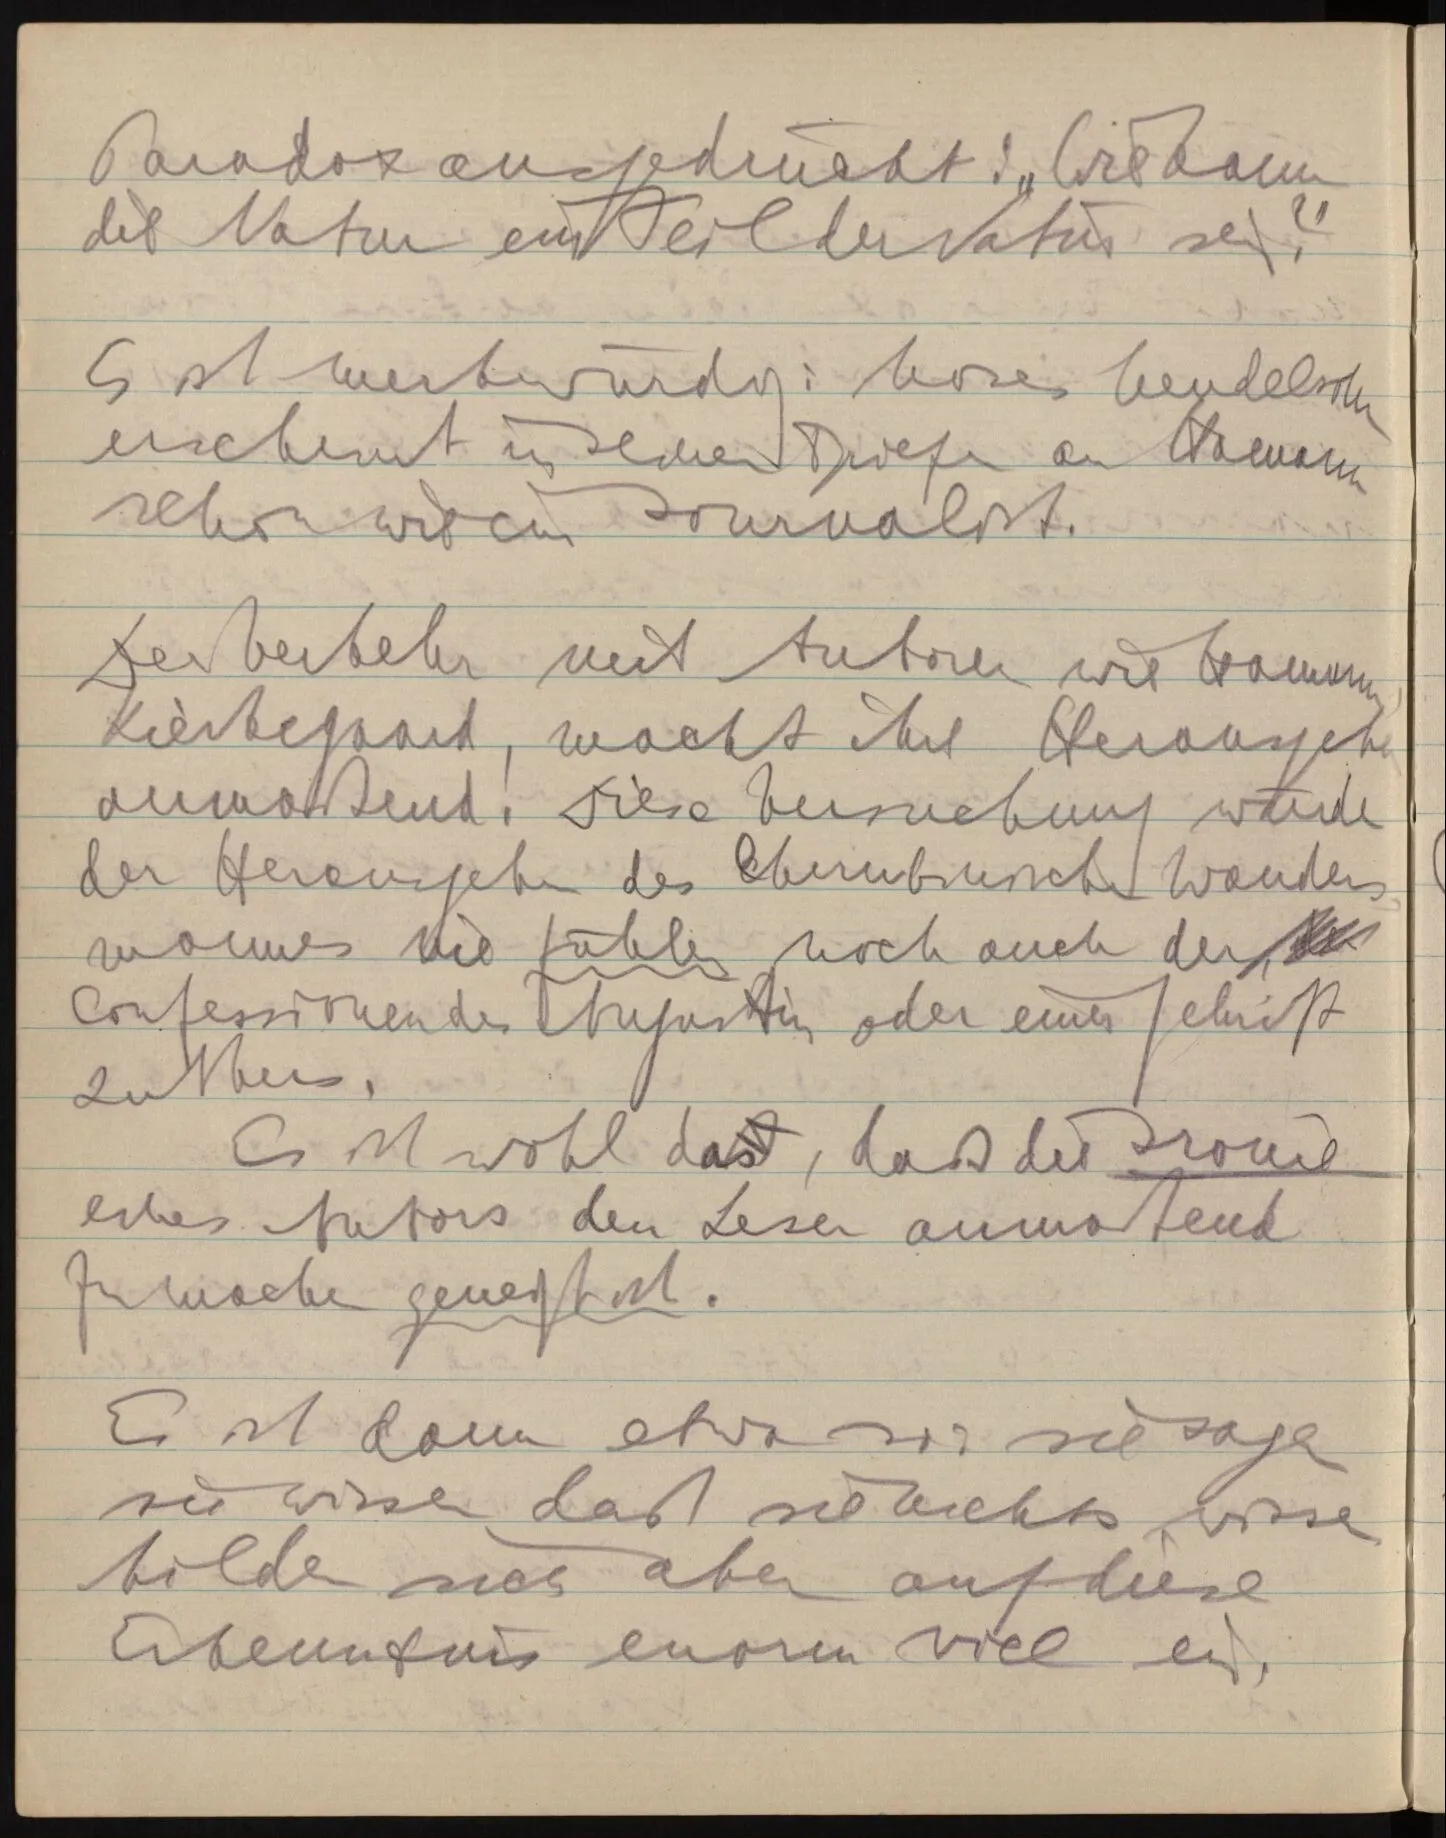 Paradox ausgedrückt: „Wie kann
die Natur ein Teil der Natur sein?“
Es ist merkwürdig: Moses Mendelsohn
erscheint in seinen Briefen an Hamann
schon wie ein Journalist.
Der Verkehr mit Autoren wie Hamann,
Kierkegaard, macht ihre Herausgeber
anmaßend! Diese Versuchung würde
der Herausgeber des Cherubinischen Wanders
mannes nie fühlen, noch auch der
Confessionen des Augustin oder einer Schrift
Luthers.
Es ist wohl das, daß die Ironie
eines Autors den Leser anmaßend
zu machen geneigt ist.
Es ist dann etwa so: sie sagen
sie wissen daß sie nichts wissen
bilden sich aber auf diese
Erkenntnis enorm viel ein.